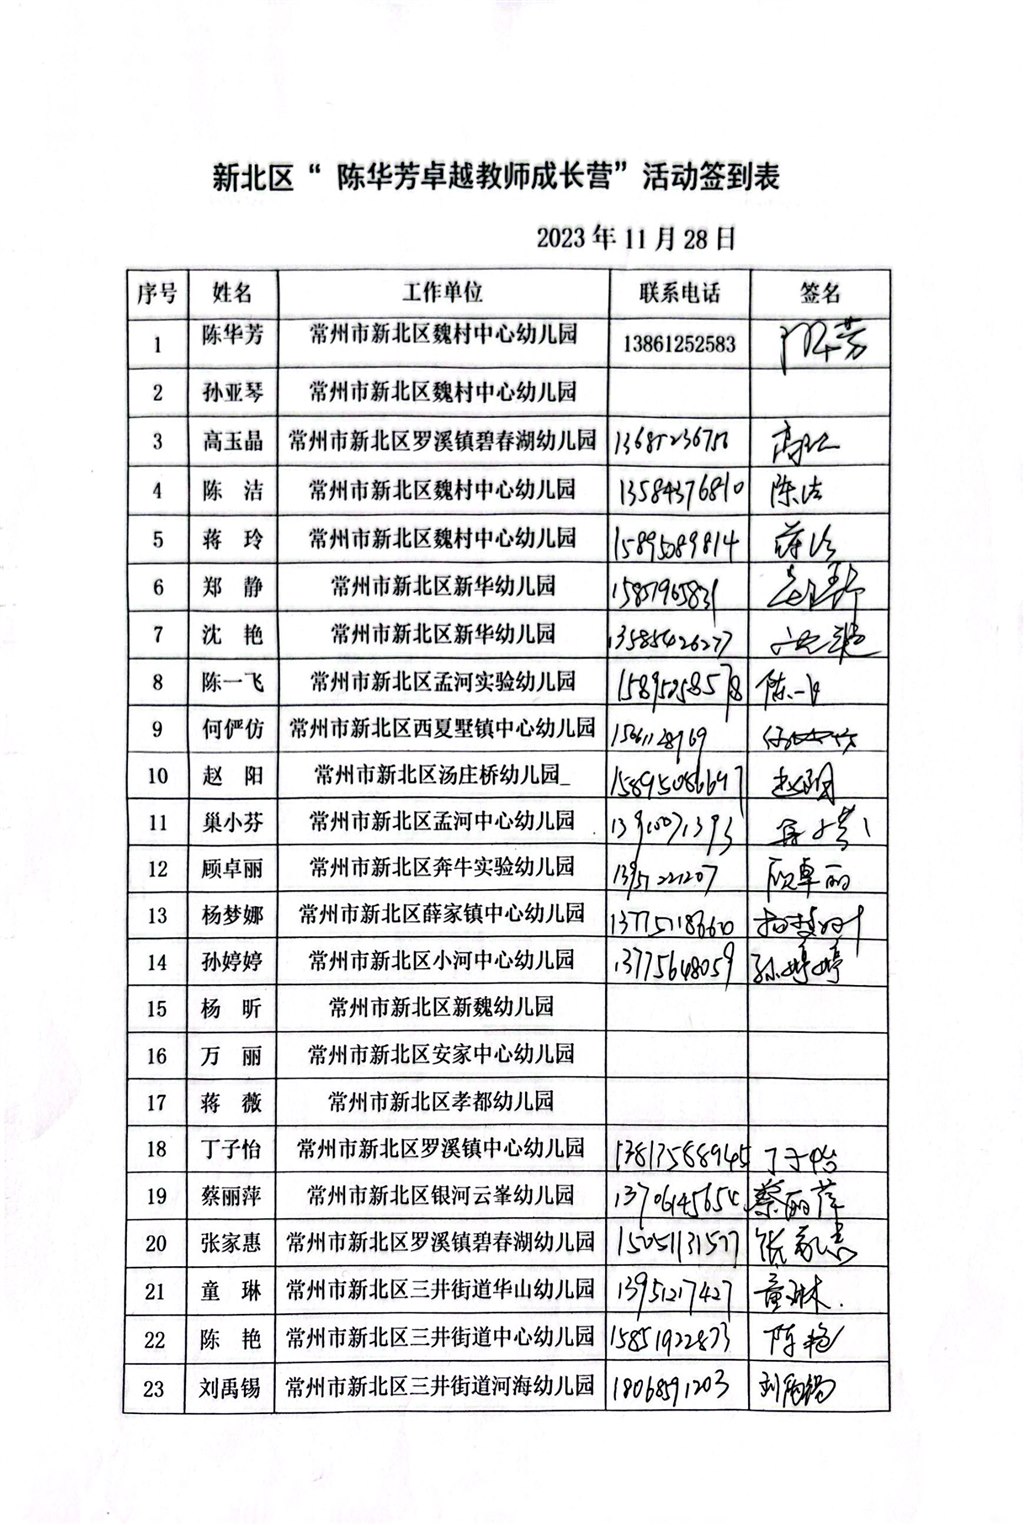 新北区“ 陈华芳卓越教师成长营”活动签到表
2023 年 11 月 28 日
序号 姓名 工作单位 联系电话 签名
1 陈华芳 常州市新北区魏村中心幼儿园 13861252583
2 孙亚琴 常州市新北区魏村中心幼儿园
3 高玉晶 常州市新北区罗溪镇碧春湖幼儿园
4 陈 洁 常州市新北区魏村中心幼儿园 13584376810 陈洁
5 蒋 玲 常州市新北区魏村中心幼儿园 15895089814 蒋玲
6 郑 静 常州市新北区新华幼儿园
7 沈 艳 常州市新北区新华幼儿园 13585426277 沈艳
8 陈一飞 常州市新北区孟河实验幼儿园 陈一飞
9 何俨仿 常州市新北区西夏墅镇中心幼儿园
10 赵 阳 常州市新北区汤庄桥幼儿园_ 15895086697 赵阳
11 巢小芬 常州市新北区孟河中心幼儿园
12 顾卓丽 常州市新北区奔牛实验幼儿园 顾卓丽
13 杨梦娜 常州市新北区薛家镇中心幼儿园
14 孙婷婷 常州市新北区小河中心幼儿园 13775648059 孙婷婷
15 杨 昕 常州市新北区新魏幼儿园
16 万 丽 常州市新北区安家中心幼儿园
17 蒋 薇 常州市新北区孝都幼儿园
18 丁子怡 常州市新北区罗溪镇中心幼儿园 丁子怡
19 蔡丽萍 常州市新北区银河云峯幼儿园 13706145654 蔡丽萍
20 张家惠 常州市新北区罗溪镇碧春湖幼儿园 15051131577 张家惠
21 童 琳 常州市新北区三井街道华山幼儿园 13951217427 童琳.
22 陈 艳 常州市新北区三井街道中心幼儿园 15851922873 陈艳
23 刘禹锡 常州市新北区三井街道河海幼儿园 18068591203 刘禹锡